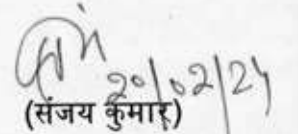 20/02/24
(संजय कुमार)